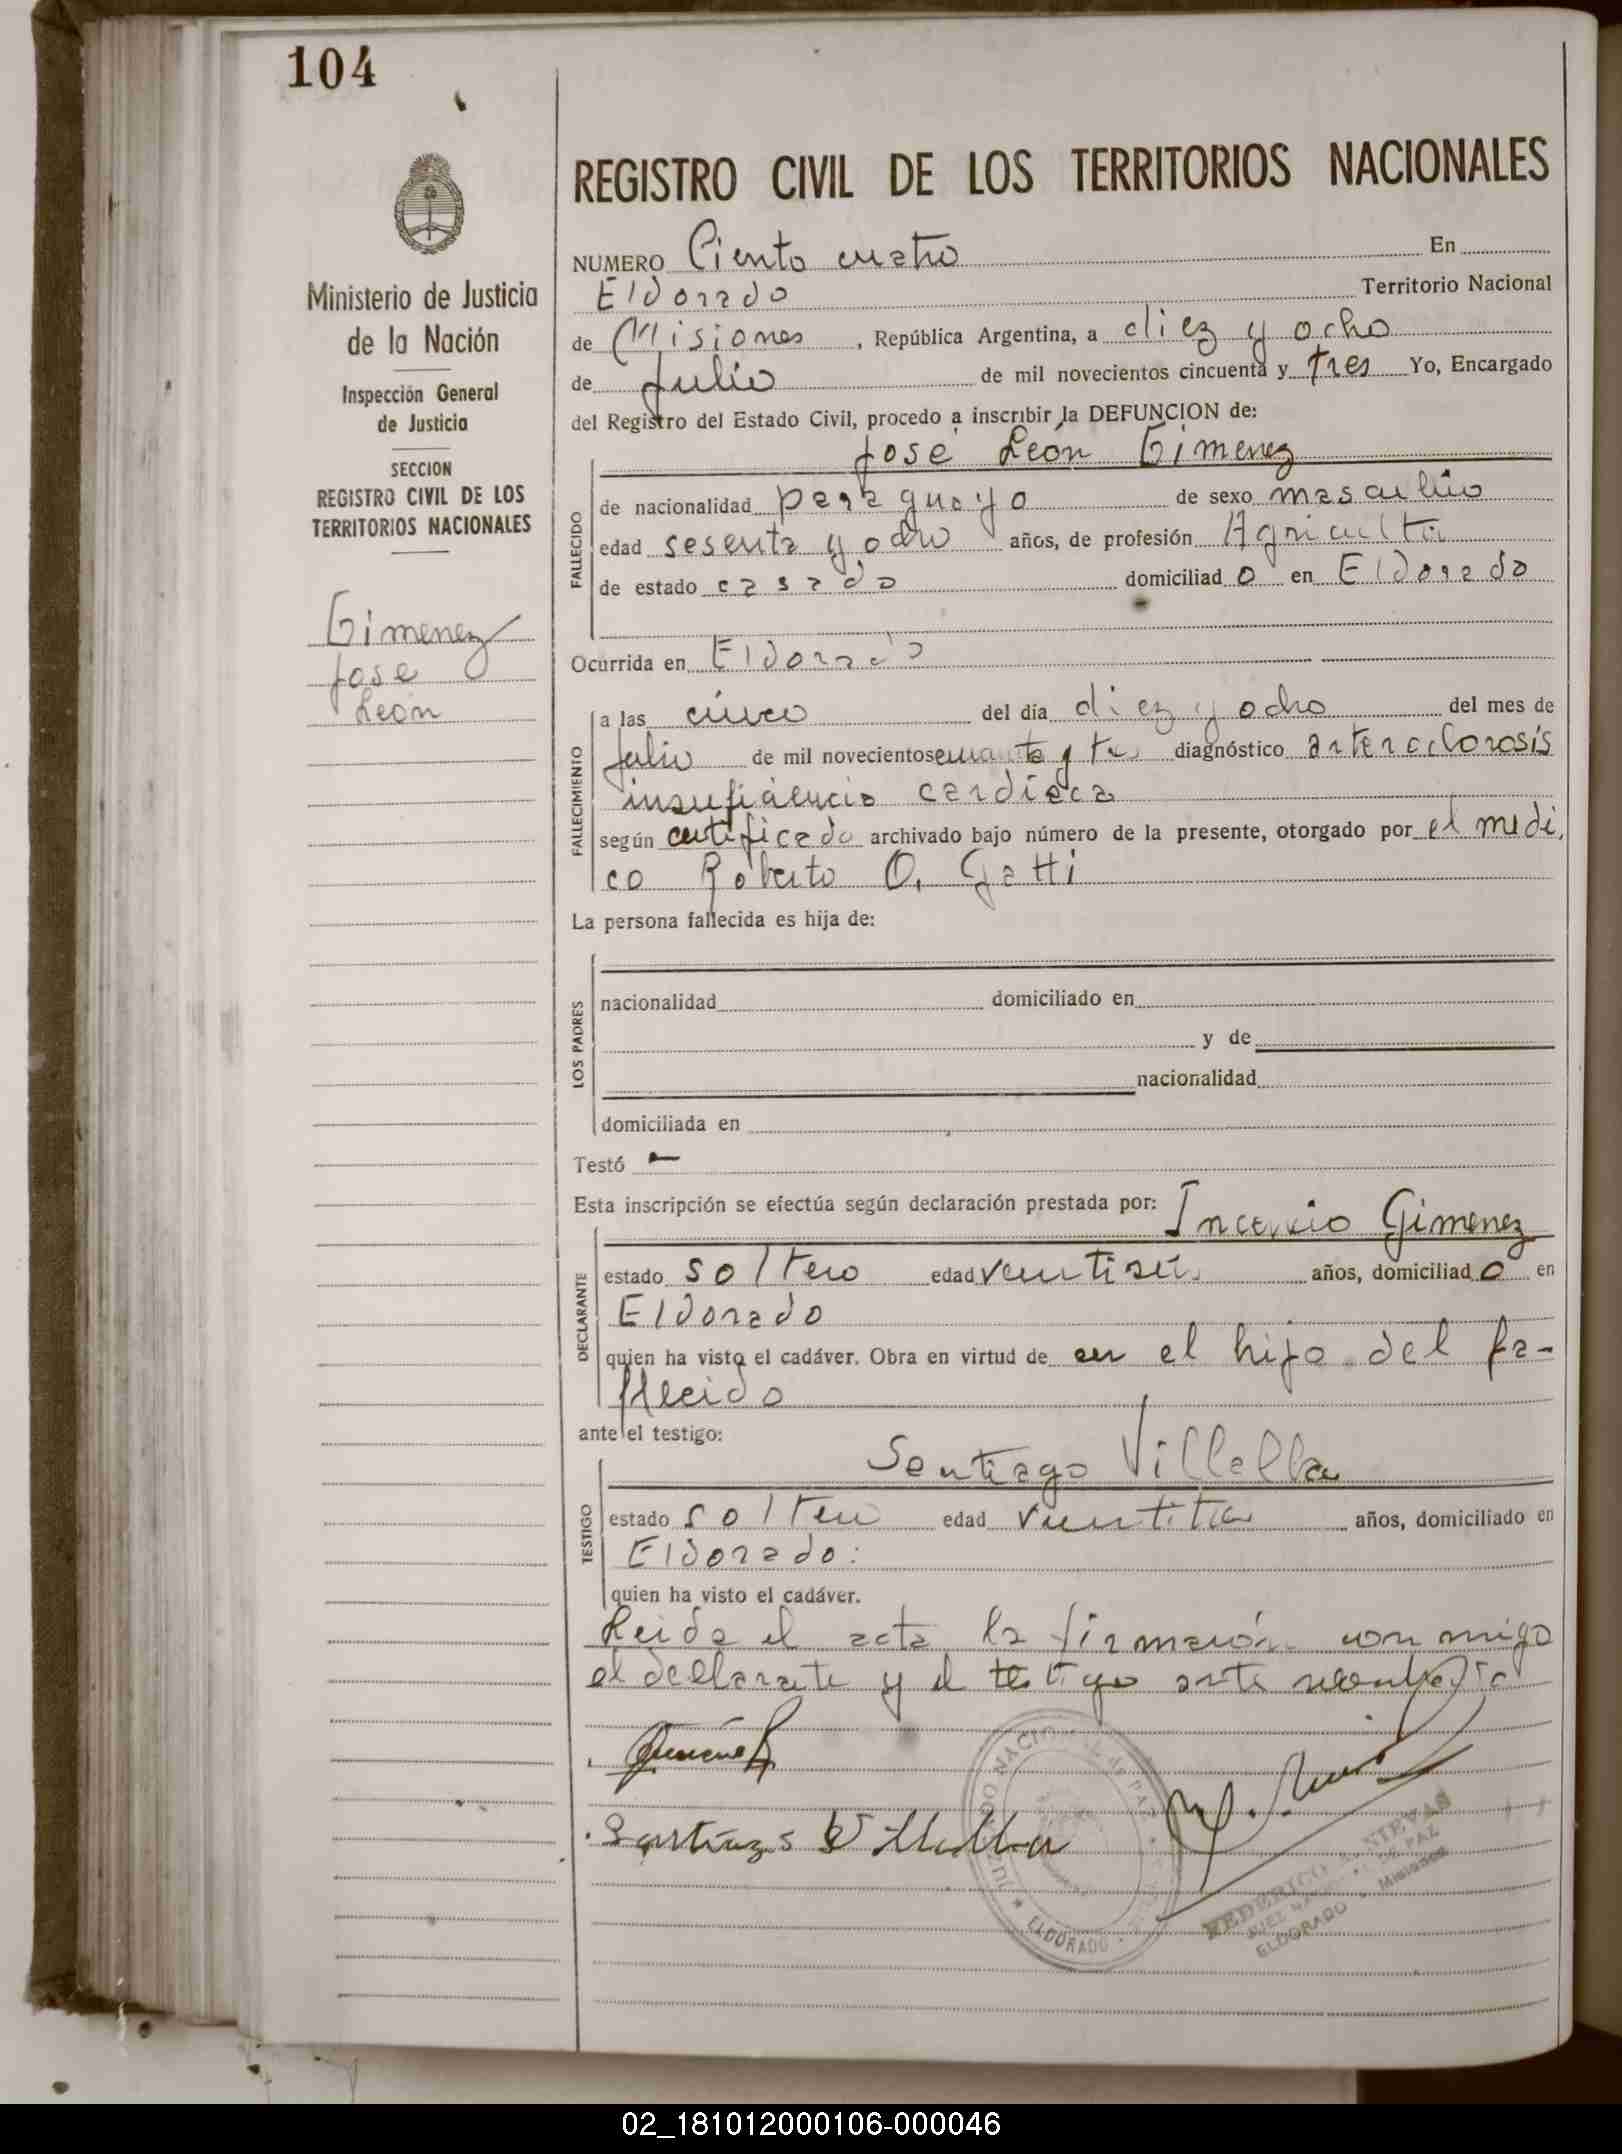 104
Ministerio de Justicia
de la Nación
Inspección General
de Justicia
SECCION
REGISTRO CIVIL DE LOS
TERRITORIOS NACIONALES
Gimenez
Jose
León
REGISTRO CIVIL DE LOS TERRITORIOS NACIONALES
NUMERO Ciento cuatro En
Eldorado Territorio Nacional
de Misiones, República Argentina, a diez y ocho
de Julio de mil novecientos cincuenta y tres Yo, Encargado
del Registro del Estado Civil, procedo a inscribir la DEFUNCION de:
José León Gimenez
FALLECIDO
de nacionalidad paraguayo de sexo masculino
edad sesenta y ocho años, de profesión Agricultor
de estado casado domiciliado en Eldorado
Ocurrida en Eldorado
FALLECIMIENTO
a las cinco del día diez y ocho del mes de
Julio de mil novecientos y tres diagnóstico
insuficiencia cardiaca
según certificado archivado bajo número de la presente, otorgado por el medi,
co Roberto O. Gatti
La persona fallecida es hija de:
LOS PADRES
nacionalidad domiciliado en
y de
nacionalidad
domiciliada en
Testó —
Esta inscripción se efectúa según declaración prestada por: Gimenez
DECLARANTE
estado soltero edad años, domiciliado en
Eldorado
quien ha visto el cadáver. Obra en virtud de ser el hijo del fa-
llecido
ante el testigo:
Santiago Villalba
TESTIGO
estado soltero edad años, domiciliado en
Eldorado.
quien ha visto el cadáver.
Leida el acta la firmarón conmigo
el declarante y el testigo ante
Gimenez
Santiago Villalba
JUZGADO NACIONAL DE PAZ
ELDORADO
FEDERICO NIEVAS
JUEZ NACIONAL DE PAZ
ELDORADO - Misiones
02_181012000106-000046